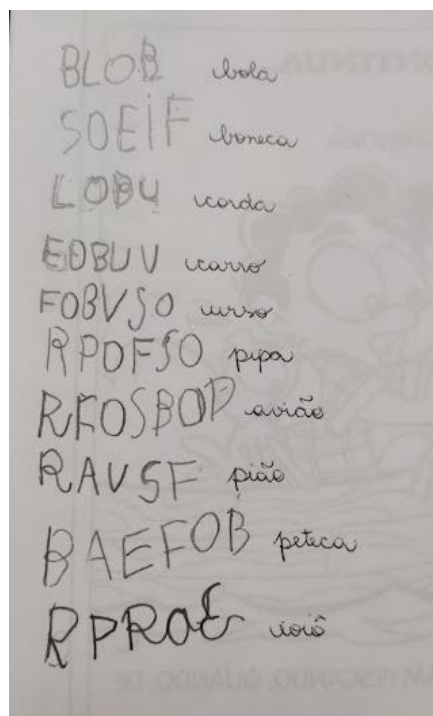 BLOB bola
SOEIF boneca
LOBU corda
EOBUV carro
FOBVSO urso
RPOFSO pipa
RFOSBOP avião
RAVSF pião
BAEFOB peteca
RPROE ioiô